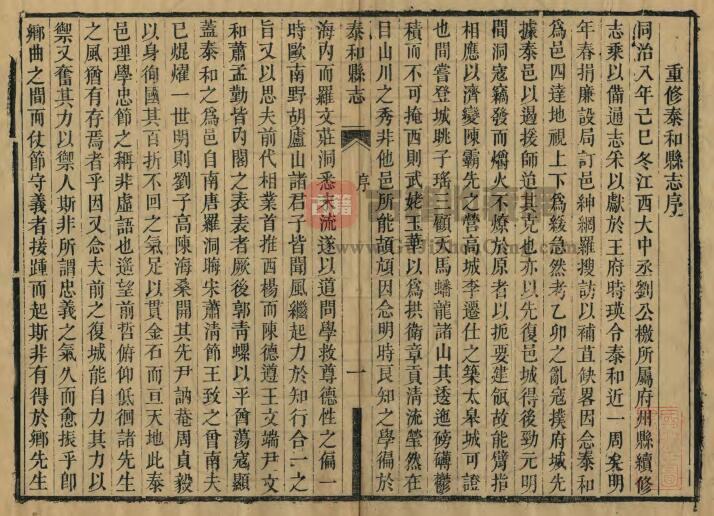 重修泰和縣志序
同治八年己巳冬江西大中丞劉公檄所屬府州縣續修
志乘以備通志采以獻於王府時瑛合泰和近一周矣明
年春捐廉設局訂邑紳網羅搜訪以補苴缺畧因念泰和
爲邑四達地視上下爲緩急然考乙卯之亂寇撲府城先
據泰邑以遏援師迨其克也亦以先復邑城得後勁元明
間洞寇竊發而爝火不燎於原者以扼要建瓴故能臂指
相應以濟變陳霸先之營高城李遷仕之築大皋城可證
也間嘗登城眺子瑤三顧天馬蟠龍諸山其透迤磅礴鬱
積而不可掩西則武姥玉華以爲拱衛章貢清流瑩然在
目山川之秀非他邑所能頡頏因念明時良知之學徧於
泰和縣志
序
一
海內而羅文莊洞悉末流遂以道問學救尊德性之偏一
時歐南野胡廬山諸君子皆聞風繼起力於知行合一之
旨又以思夫前代相業首推西楊而陳德遵王文端尹文
和蕭孟勤皆內閣之表表者厥後郭青螺以平酋蕩寇顯
蓋泰和之爲邑自南唐羅洞晦宋蕭清節王致之曾南夫
已焜燿一世明則劉子高陳海桑開其先尹訥菴周貞毅
以身徇國其百折不回之氣足以貫金石而亘天地此泰
邑理學忠節之稱非虛語也遙望前哲俯仰低徊諸先生
之風猶有存焉者乎因又念夫前之復城能自力其力以
禦又奮其力以禦人斯非所謂忠義之氣久而愈振乎卽
鄉曲之間而仗節守義者接踵而起斯非有得於鄉先生